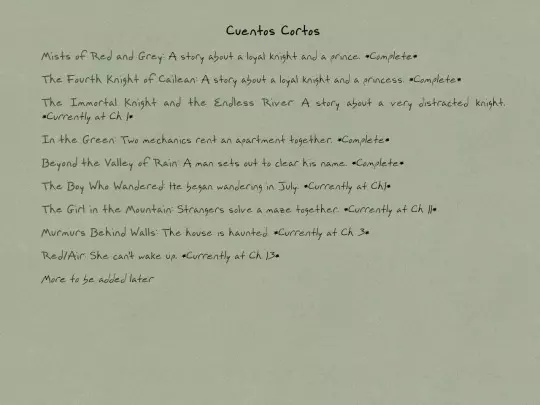 Cuentos Cortos
Mists of Red and Grey: A story about a loyal knight and a prince. *Complete*
The Fourth Knight of Cailean: A story about a loyal knight and a princess. *Complete*
The Immortal Knight and the Endless River: A story about a very distracted knight.
*Currently at Ch 1*
In the Green: Two mechanics rent an apartment together. *Complete*
Beyond the Valley of Rain: A man sets out to clear his name. *Complete*
The Boy Who Wandered: He began wandering in July. *Currently at Ch1*
The Girl in the Mountain: Strangers solve a maze together. *Currently at Ch 11*
Murmurs Behind Walls: The house is haunted. *Currently at Ch 3*
Red/Air: She can't wake up. *Currently at Ch 13*
More to be added later